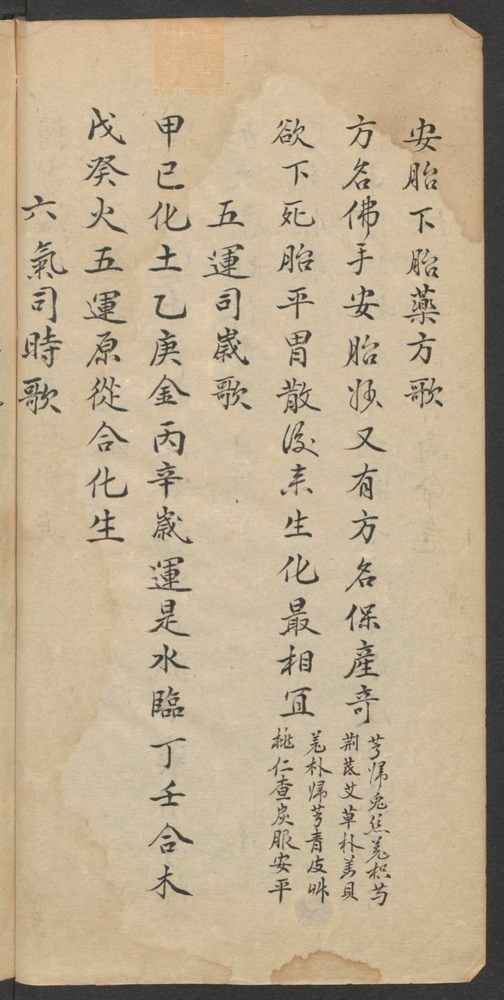 安胎下胎藥方歌
方名佛手安胎妙又有方名保產奇
芎歸兔絲羌枳芍
荆芪艾草朴姜貝
欲下死胎平胃散後来生化最相宜
羌朴歸芎青皮艸
桃仁查炭服安平
五運司嵗歌
甲己化土乙庚金丙辛嵗運是水臨丁壬合木
戊癸火五運原從合化生
六氣司時歌